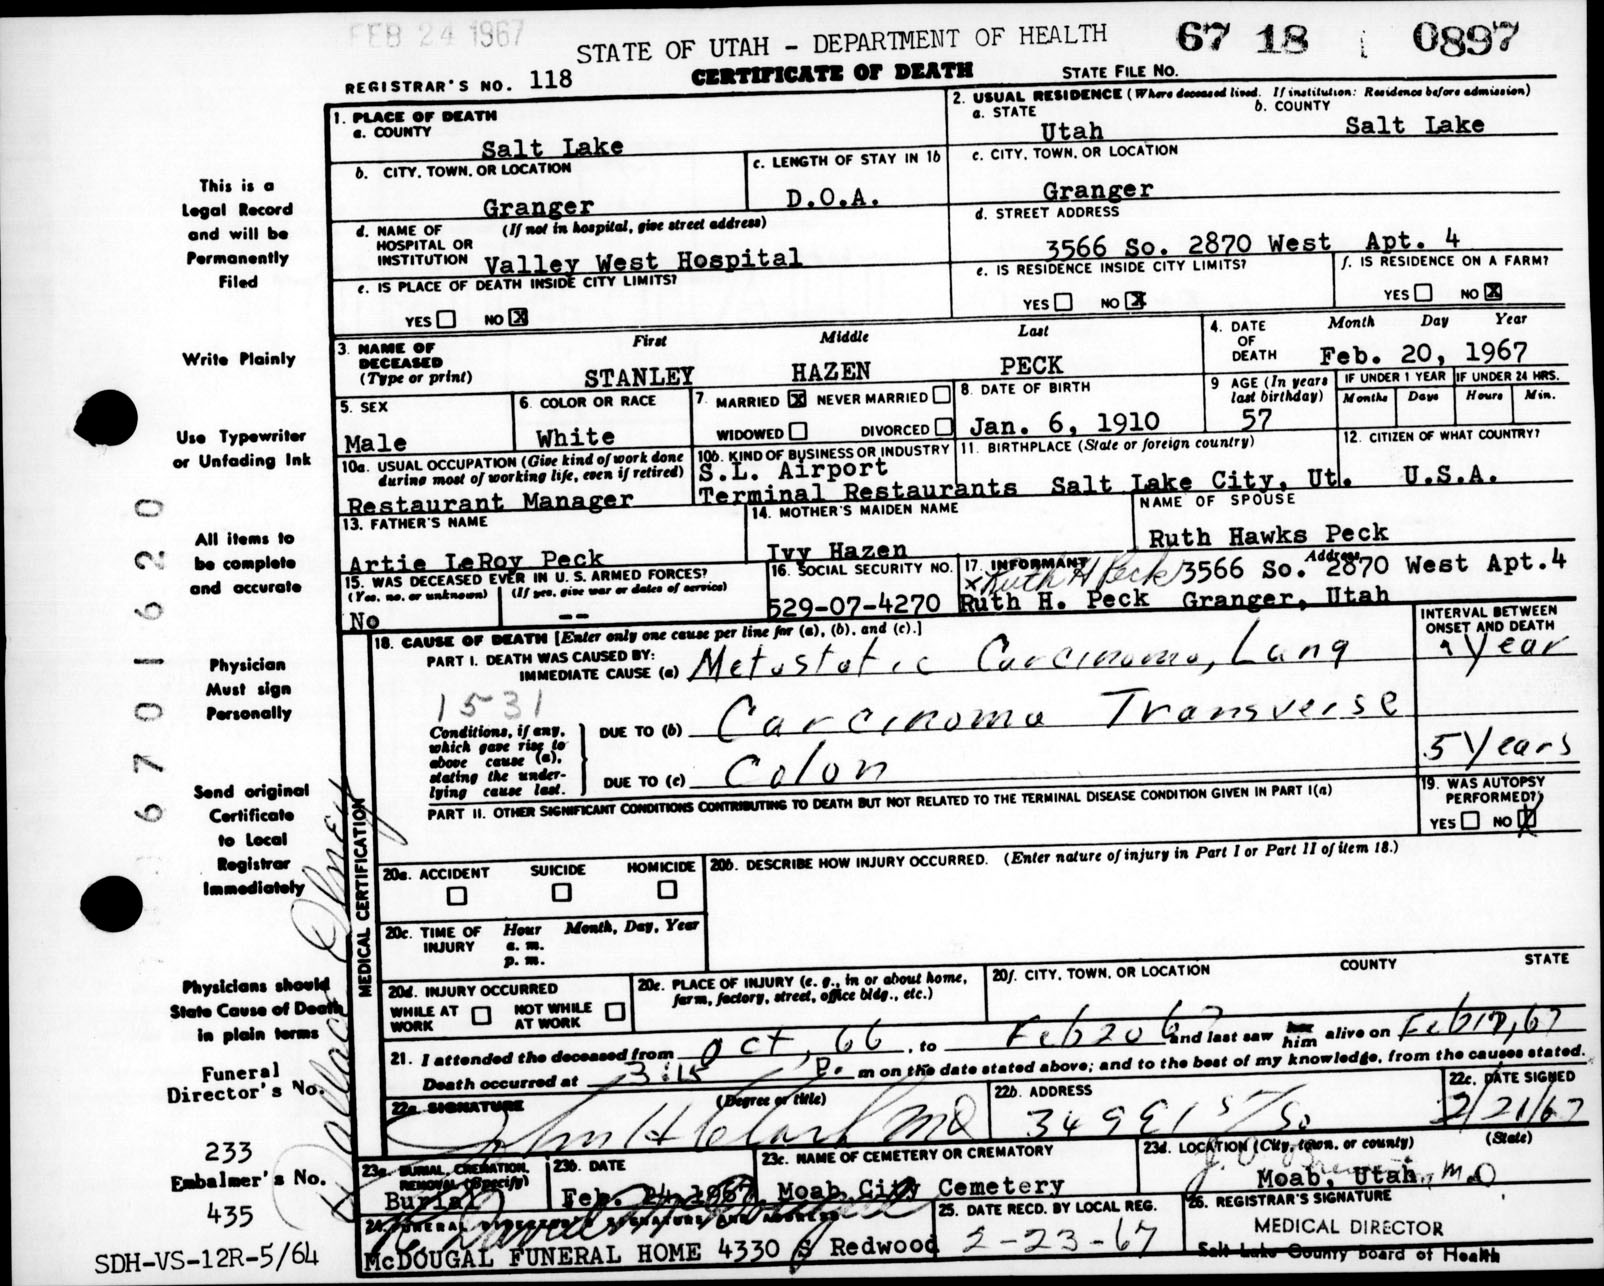 FEB 24 1967
STATE OF UTAH - DEPARTMENT OF HEALTH 67 18 0897
REGISTRAR'S NO. 118 CERTIFICATE OF DEATH STATE FILE NO.
1. PLACE OF DEATH
a. COUNTY
Salt Lake
2. USUAL RESIDENCE (Where deceased lived. If institution: Residence before admission)
a. STATE b. COUNTY
Utah Salt Lake
b. CITY, TOWN, OR LOCATION
Granger
c. LENGTH OF STAY IN 1b
D.O.A.
c. CITY, TOWN, OR LOCATION
Granger
d. NAME OF HOSPITAL OR INSTITUTION (If not in hospital, give street address)
Valley West Hospital
d. STREET ADDRESS
3566 So. 2870 West Apt. 4
e. IS PLACE OF DEATH INSIDE CITY LIMITS?
YES NO X
e. IS RESIDENCE INSIDE CITY LIMITS?
YES NO X
f. IS RESIDENCE ON A FARM?
YES NO X
3. NAME OF DECEASED (Type or print)
First Middle Last
STANLEY HAZEN PECK
4. DATE OF DEATH
Month Day Year
Feb. 20, 1967
5. SEX
Male
6. COLOR OR RACE
White
7. MARRIED X NEVER MARRIED
WIDOWED DIVORCED
8. DATE OF BIRTH
Jan. 6, 1910
9 AGE (In years last birthday)
57
IF UNDER 1 YEAR
Months Days
IF UNDER 24 HRS.
Hours Min.
10a. USUAL OCCUPATION (Give kind of work done during most of working life, even if retired)
Restaurant Manager
10b. KIND OF BUSINESS OR INDUSTRY
S.L. Airport
Terminal Restaurants
11. BIRTHPLACE (State or foreign country)
Salt Lake City, Ut.
12. CITIZEN OF WHAT COUNTRY?
U.S.A.
13. FATHER'S NAME
Artie LeRoy Peck
14. MOTHER'S MAIDEN NAME
Ivy Hazen
NAME OF SPOUSE
Ruth Hawks Peck
15. WAS DECEASED EVER IN U. S. ARMED FORCES?
(Yes, no, or unknown) (If yes, give war or dates of service)
No --
16. SOCIAL SECURITY NO.
529-07-4270
17. INFORMANT Address
x Ruth H Peck 3566 So. 2870 West Apt.4
Ruth H. Peck Granger, Utah
18. CAUSE OF DEATH [Enter only one cause per line for (a), (b), and (c).]
INTERVAL BETWEEN ONSET AND DEATH
PART I. DEATH WAS CAUSED BY:
IMMEDIATE CAUSE (a) Metastatic Carcinoma, Lung
Year
1531
Conditions, if any, which gave rise to above cause (a), stating the underlying cause last.
DUE TO (b) Carcinoma Transverse
DUE TO (c) Colon
5 Years
PART II. OTHER SIGNIFICANT CONDITIONS CONTRIBUTING TO DEATH BUT NOT RELATED TO THE TERMINAL DISEASE CONDITION GIVEN IN PART I(a)
19. WAS AUTOPSY PERFORMED?
YES NO X
MEDICAL CERTIFICATION
20a. ACCIDENT SUICIDE HOMICIDE
20b. DESCRIBE HOW INJURY OCCURRED. (Enter nature of injury in Part I or Part II of item 18.)
20c. TIME OF INJURY
Hour Month, Day, Year
a. m.
p. m.
20d. INJURY OCCURRED
WHILE AT WORK NOT WHILE AT WORK
20e. PLACE OF INJURY (e. g., in or about home, farm, factory, street, office bldg., etc.)
20f. CITY, TOWN, OR LOCATION COUNTY STATE
21. I attended the deceased from Oct, 66, to Feb 20 67 and last saw her him alive on Feb 17, 67
Death occurred at 3:15 P. m on the date stated above; and to the best of my knowledge, from the causes stated.
22a. SIGNATURE (Degree or title)
John H Clark MD
22b. ADDRESS
22c. DATE SIGNED
2/21/67
23a. BURIAL, CREMATION, REMOVAL (Specify)
Burial
23b. DATE
Feb. 24 1967
23c. NAME OF CEMETERY OR CREMATORY
Moab City Cemetery
23d. LOCATION (City, town, or county) (State)
Moab, Utah
M.D
24. FUNERAL DIRECTOR'S SIGNATURE AND ADDRESS
McDOUGAL FUNERAL HOME 4330 S Redwood
25. DATE RECD. BY LOCAL REG.
2-23-67
26. REGISTRAR'S SIGNATURE
MEDICAL DIRECTOR
Salt Lake County Board of Health
This is a
Legal Record
and will be
Permanently
Filed
Write Plainly
Use Typewriter
or Unfading Ink
All items to
be complete
and accurate
Physician
Must sign
Personally
Send original
Certificate
to Local
Registrar
Immediately
Physicians should
State Cause of Death
in plain terms
Funeral
Director's No.
233
Embalmer's No.
435
SDH-VS-12R-5/64
67 01620